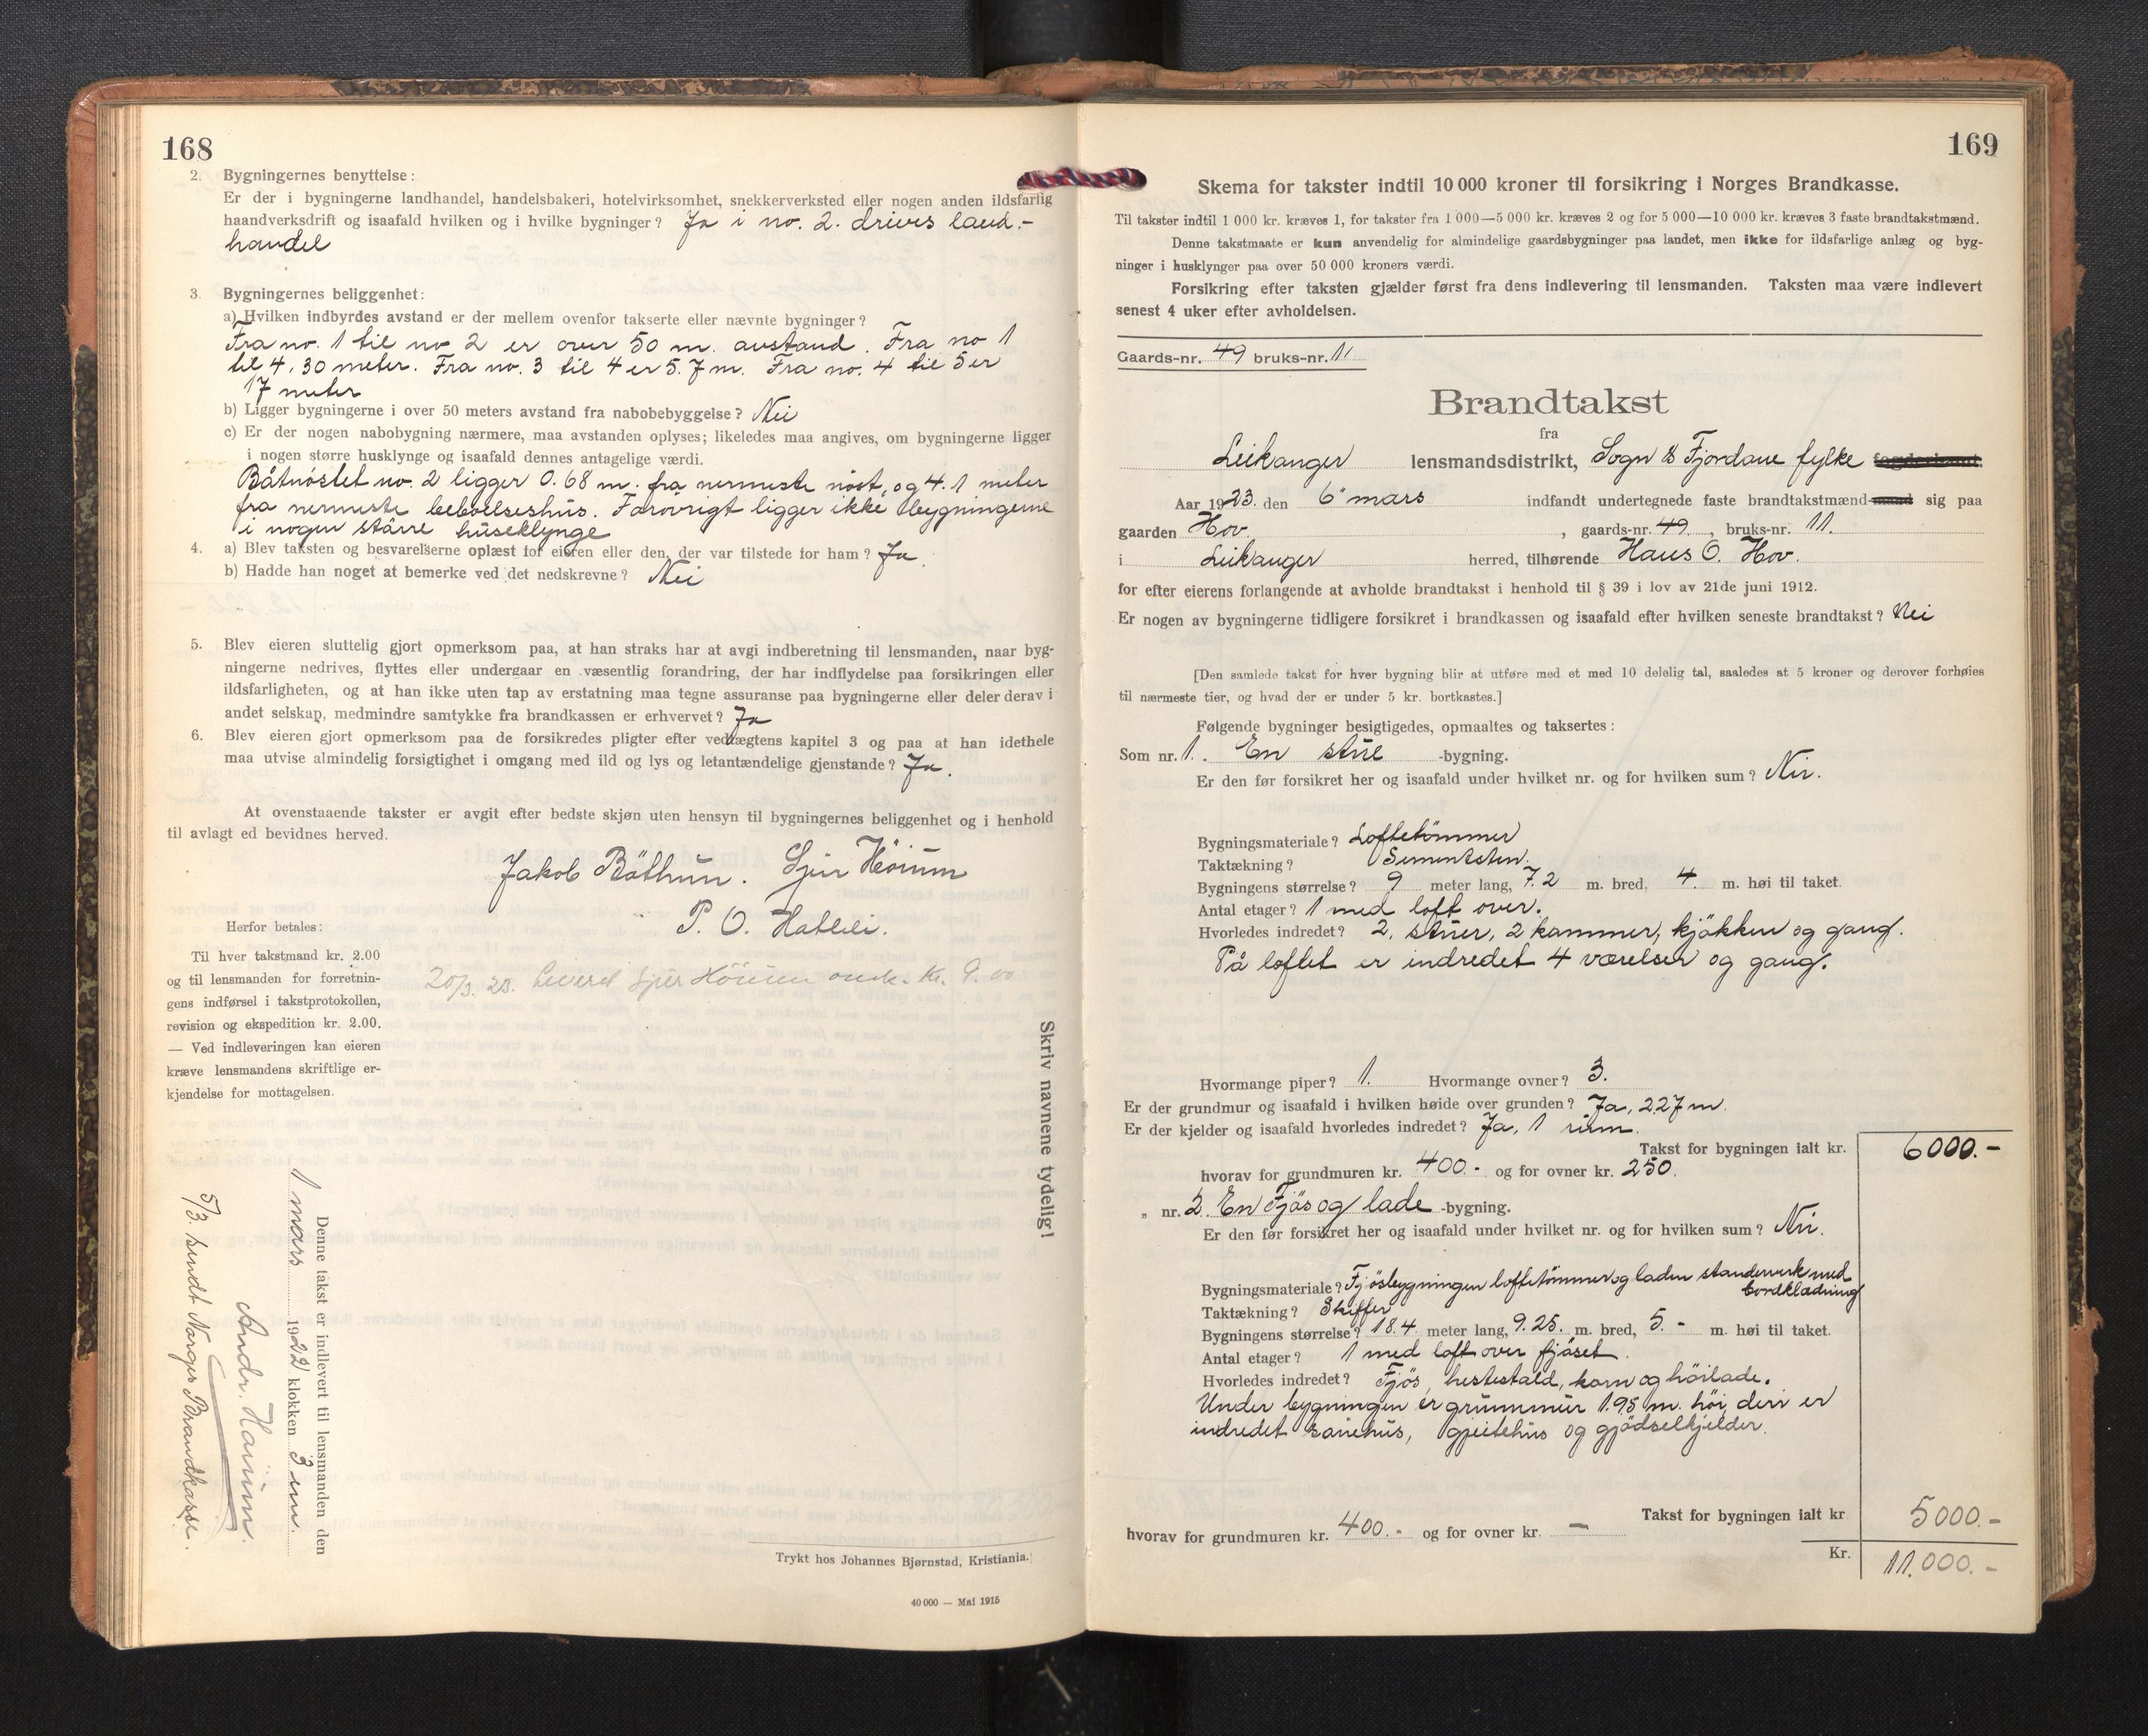 168
2. Bygningernes benyttelse:
Er der i bygningerne landhandel, handelsbakeri, hotelvirksomhet, snekkerverksted eller nogen anden ildsfarlig
haandverksdrift og isaafald hvilken og i hvilke bygninger? Ja i no. 2. drives land-
handel
3. Bygningernes beliggenhet:
a) Hvilken indbyrdes avstand er der mellem ovenfor takserte eller nævnte bygninger?
Fra no. 1 til no 2 er over 50 m. avstand. Fra no 1
til 4, 30 meter. Fra no. 3 til 4 er 5.7 m. Fra no. 4 til 5 er
17 meter
b) Ligger bygningerne i over 50 meters avstand fra nabobebyggelse? Nei
c) Er der nogen nabobygning nærmere, maa avstanden oplyses; likeledes maa angives, om bygningerne ligger
i nogen større husklynge og isaafald dennes antagelige værdi.
Båtnöstet no. 2 ligger 0.68 m. fra nermeste nöst, og 4.1 meter
fra nermeste beboelseshus. Forövrigt ligger ikke bygningerne
i nogen större huseklynge
4. a) Blev taksten og besvarelserne oplæst for eieren eller den, der var tilstede for ham? Ja.
b) Hadde han noget at bemerke ved det nedskrevne? Nei
5. Blev eieren sluttelig gjort opmerksom paa, at han straks har at avgi indberetning til lensmanden, naar byg-
ningerne nedrives, flyttes eller undergaar en væsentlig forandring, der har indflydelse paa forsikringen eller
ildsfarligheten, og at han ikke uten tap av erstatning maa tegne assuranse paa bygningerne eller deler derav i
andet selskap, medmindre samtykke fra brandkassen er erhvervet? Ja
6. Blev eieren gjort opmerksom paa de forsikredes pligter efter vedtægtens kapitel 3 og paa at han idethele
maa utvise almindelig forsigtighet i omgang med ild og lys og letantændelige gjenstande? Ja.
At ovenstaaende takster er avgit efter bedste skjøn uten hensyn til bygningernes beliggenhet og i henhold
til avlagt ed bevidnes herved.
Jakob Böthun. Sjur Höium
P. O. Hatleli.
Herfor betales:
Til hver takstmand kr. 2.00
og til lensmanden for forretnin-
gens indførsel i takstprotokollen,
revision og ekspedition kr. 2.00.
— Ved indleveringen kan eieren
kræve lensmandens skriftlige er-
kjendelse for mottagelsen.
20/3. 23. leverd Sjur Höium kr. 9.00
Skriv navnene tydelig!
Denne takst er indlevert til lensmanden den
1 mars 1922 klokken 3 em.
Andr. Höium.
5/3. sendt Norges Brandkasse.
Trykt hos Johannes Bjørnstad, Kristiania.
40 000 — Mai 1915
169
Skema for takster indtil 10 000 kroner til forsikring i Norges Brandkasse.
Til takster indtil 1 000 kr. kræves 1, for takster fra 1 000—5 000 kr. kræves 2 og for 5 000—10 000 kr. kræves 3 faste brandtakstmænd.
Denne takstmaate er kun anvendelig for almindelige gaardsbygninger paa landet, men ikke for ildsfarlige anlæg og byg-
ninger i husklynger paa over 50 000 kroners værdi.
Forsikring efter taksten gjælder først fra dens indlevering til lensmanden. Taksten maa være indlevert
senest 4 uker efter avholdelsen.
Gaards-nr. 49 bruks-nr. 11
Brandtakst
fra
Leikanger lensmandsdistrikt, Sogn & Fjordane fylke
Aar 1923 den 6 mars indfandt undertegnede faste brandtakstmænd sig paa
gaarden Hov, gaards-nr. 49, bruks-nr. 11.
i Leikanger herred, tilhørende Hans O. Hov.
for efter eierens forlangende at avholde brandtakst i henhold til § 39 i lov av 21de juni 1912.
Er nogen av bygningerne tidligere forsikret i brandkassen og isaafald efter hvilken seneste brandtakst? Nei
[Den samlede takst for hver bygning blir at utføre med et med 10 delelig tal, saaledes at 5 kroner og derover forhøies
til nærmeste tier, og hvad der er under 5 kr. bortkastes.]
Følgende bygninger besigtigedes, opmaaltes og taksertes:
Som nr. 1. En stue -bygning.
Er den før forsikret her og isaafald under hvilket nr. og for hvilken sum? Nei.
Bygningsmateriale? Loftetömmer
Taktækning? Sementsten.
Bygningens størrelse? 9 meter lang, 7.2 m. bred, 4. m. høi til taket.
Antal etager? 1 med loft over.
Hvorledes indredet? 2, stuer, 2 kammer, kjökken og gang.
På loftet er indredet 4 værelser og gang.
Hvormange piper? 1. Hvormange ovner? 3.
Er der grundmur og isaafald i hvilken høide over grunden? Ja, 2.27 m.
Er der kjelder og isaafald hvorledes indredet? Ja, 1 rum.
Takst for bygningen ialt kr. 6000.-
hvorav for grundmuren kr. 400.- og for ovner kr. 250.
„ nr. 2. En Fjös og lade -bygning.
Er den før forsikret her og isaafald under hvilket nr. og for hvilken sum? Nei.
Bygningsmateriale? Fjösbygningen loftetömmer og laden standerverk med
bordklædning
Taktækning? Skiffer
Bygningens størrelse? 18.4. meter lang, 9.25. m. bred, 5.- m. høi til taket.
Antal etager? 1 med loft over fjöset.
Hvorledes indredet? Fjös, hestestald, korn og höilade.
Under bygningen er grummur 1.95 m. höi, deri er
indredet sauehus, gjeitehus og gjödselkjelder.
Takst for bygningen ialt kr 5000.-
hvorav for grundmuren kr. 400.- og for ovner kr. —
Kr. 11.000.-